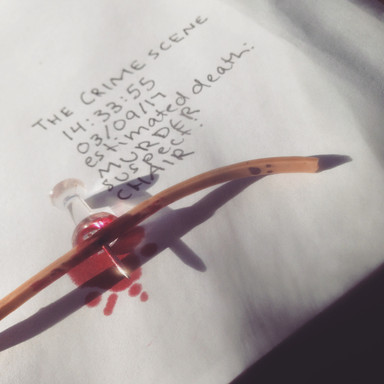 THE CRIME SCENE
14:33:55
03/09/17
estimated death:
MURDER
SUSPECT:
CHAIR